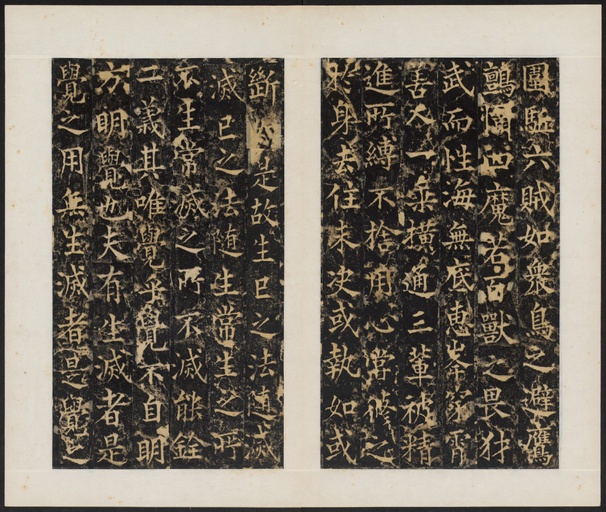 團驅六賊如衆鳥之避鷹
鸇四魔若百獸之畏犲
武而性海無底惠峯穹霄
善入一乘橫通三輩被精
進所縛不捨用心常修之
於身去住未決或執如或
斷是故生已之法隨滅
滅已之法随生常生之所
不生常滅之所不滅能銓
二義其唯覺乎覺不自明
方明覺也夫有生滅者是
覺之用無生滅者是覺之